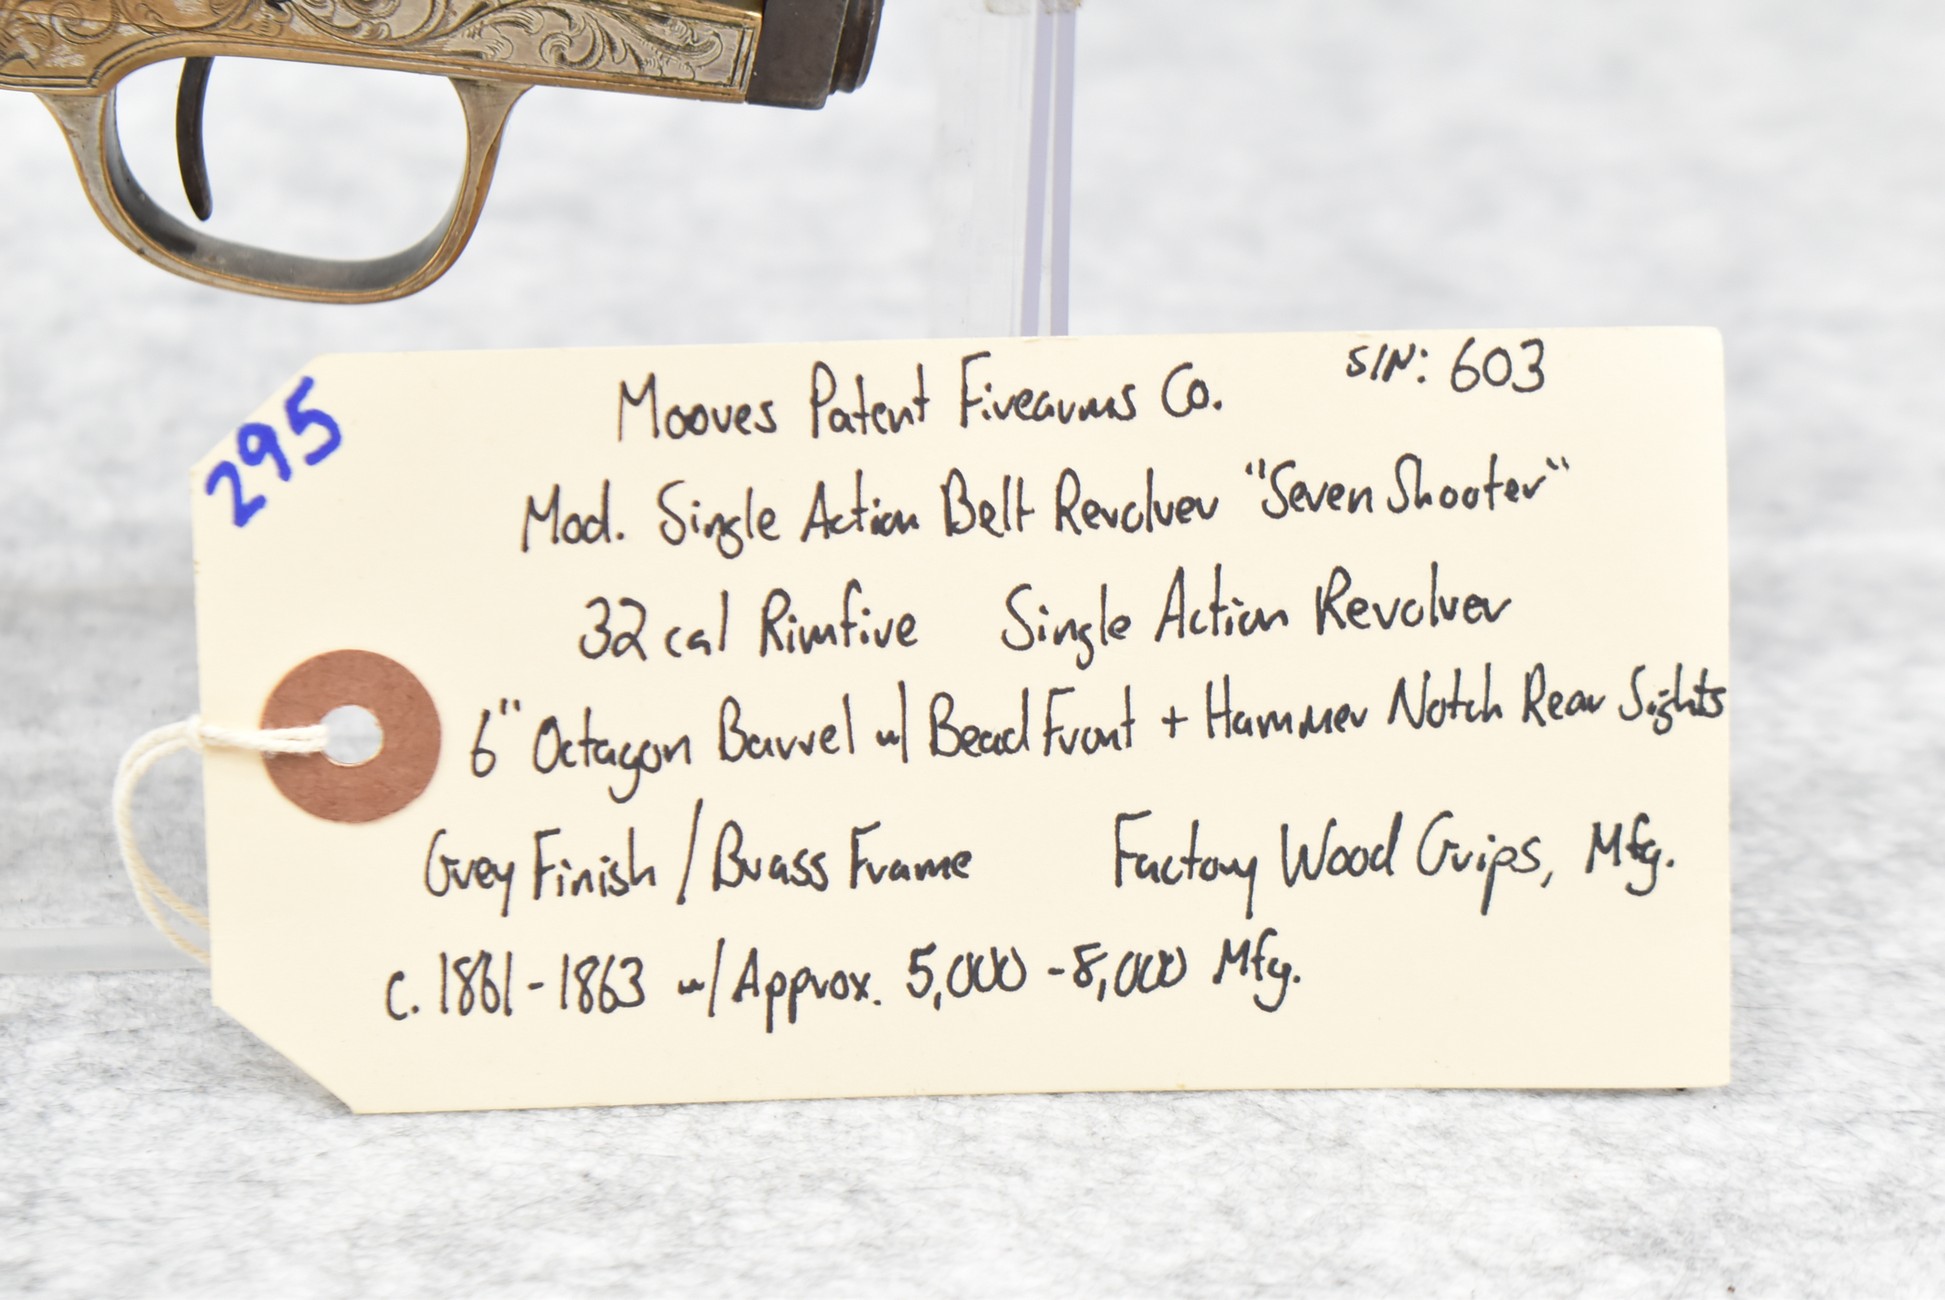 295
Moores Patent Firearms Co. S/N: 603
Mod. Single Action Belt Revolver "Seven Shooter"
32 cal Rimfire Single Action Revolver
6" Octagon Barrel w/ Bead Front + Hammer Notch Rear Sights
Grey Finish / Brass Frame Factory Wood Grips, Mfg.
c. 1861-1863 w/ Approx. 5,000 - 8,000 Mfg.